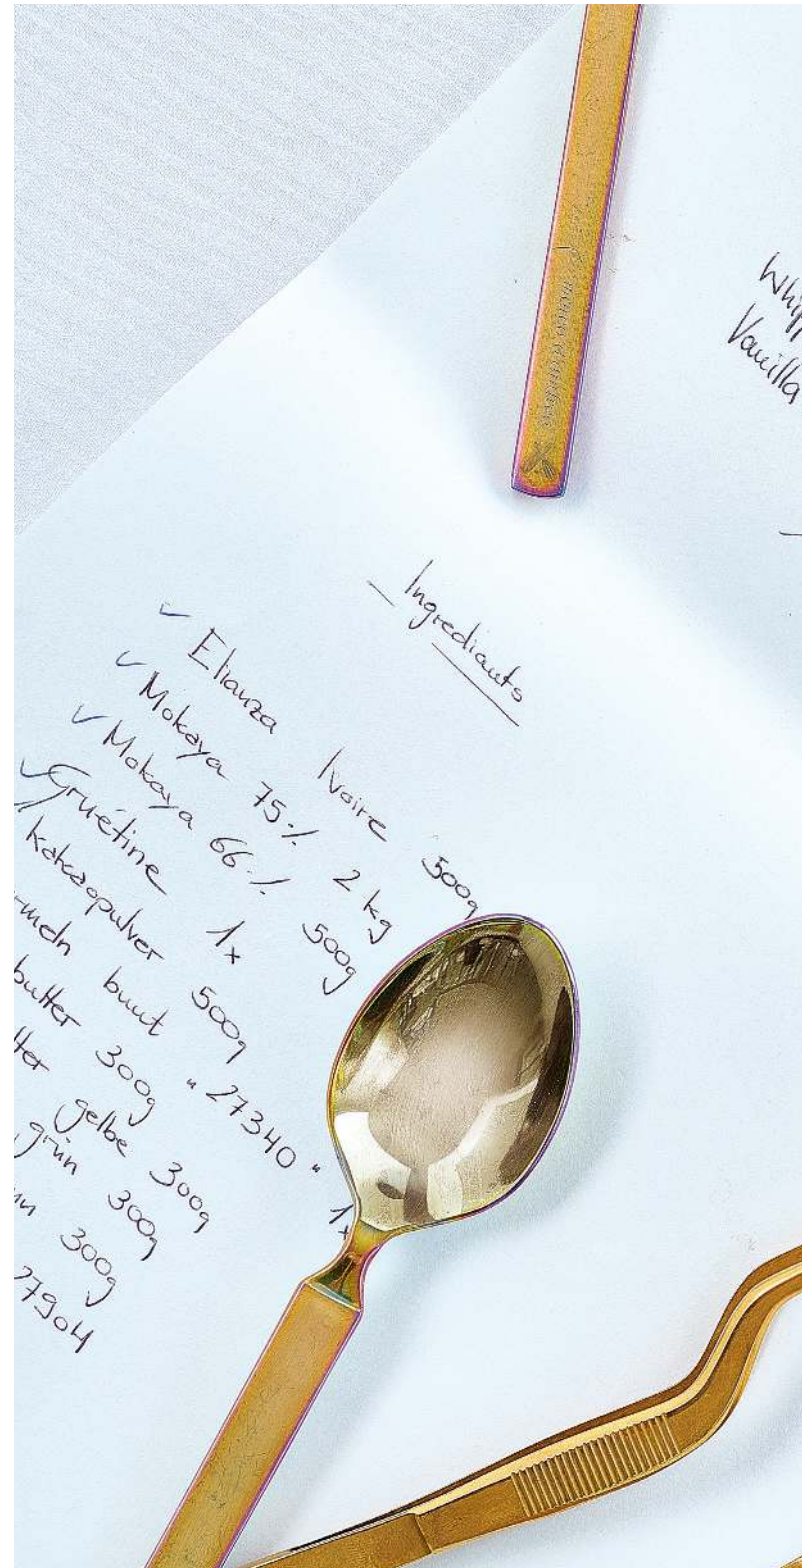 Whipp
Vanilla
Ingrediants
Elianza Ivoire 500g
Mokaya 75% 2 kg
Mokaya 66% 500g
Gruétine 1x
kakaopulver 500g
rmeln bunt "27340" 1x
butter 300g
tter gelbe 300g
grün 300g
un 300g
27904